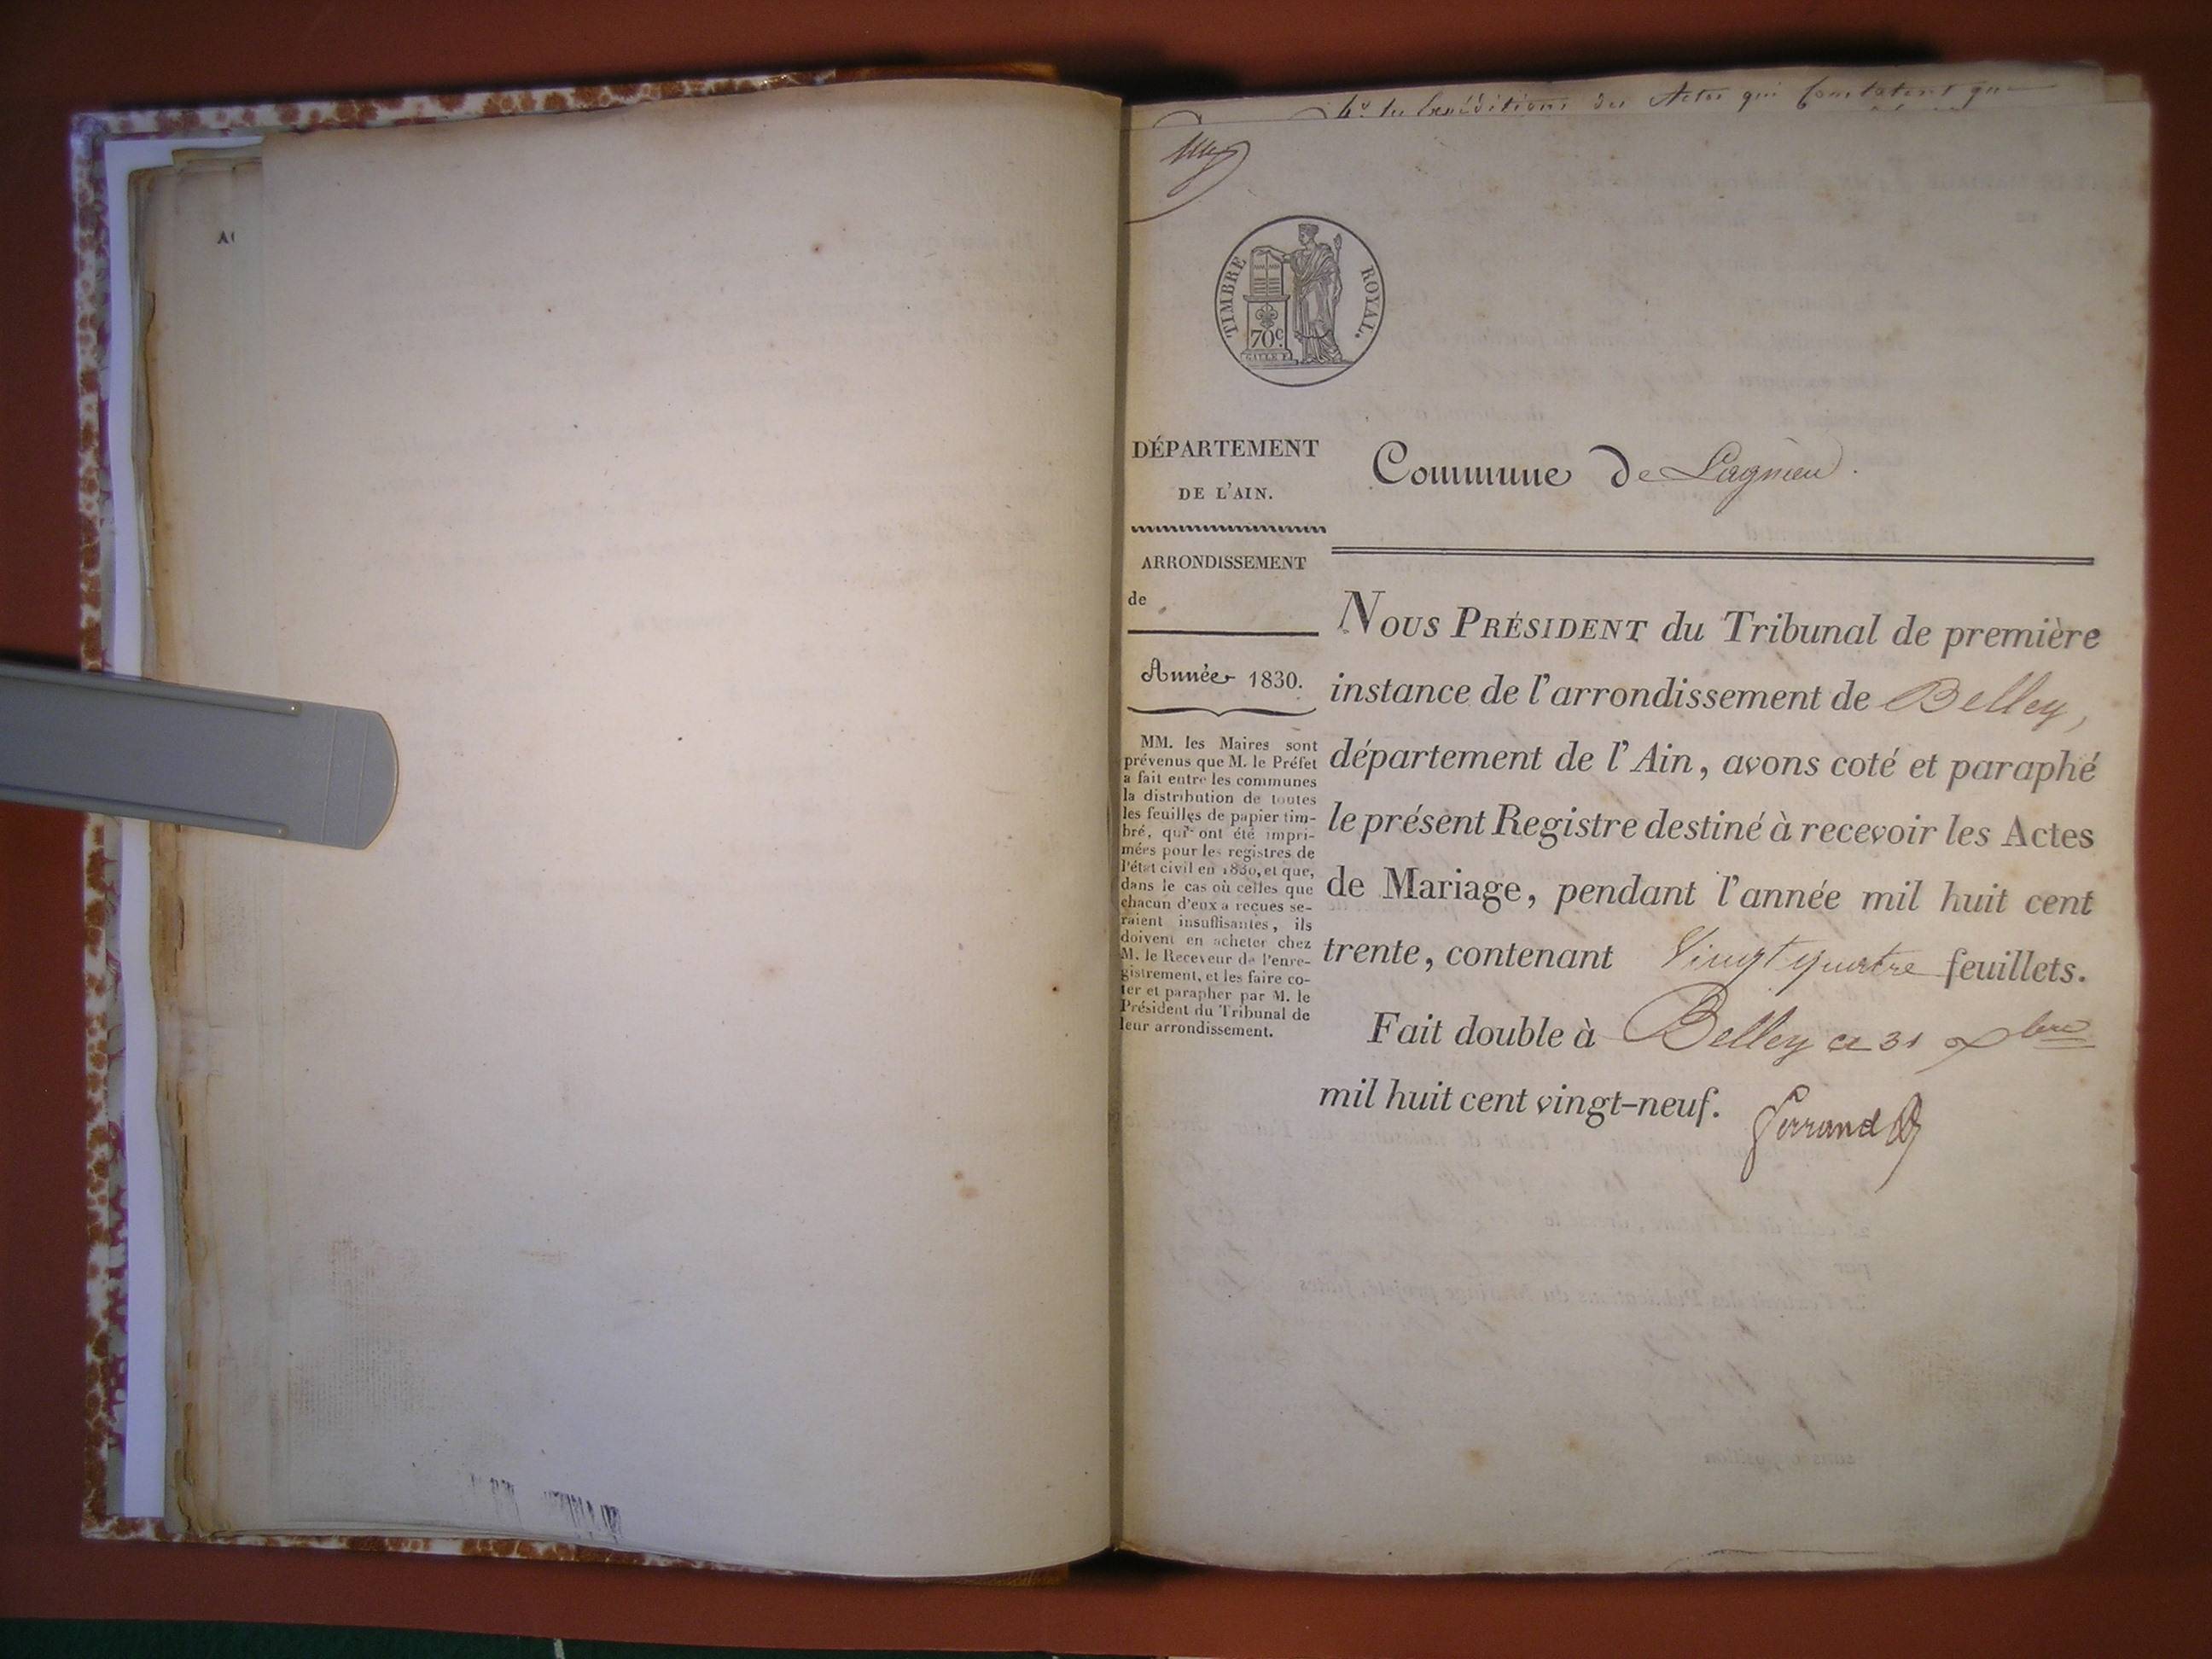 A
4° les Expéditions des Actes qui Constatent que
TIMBRE ROYAL.
70c.
DÉPARTEMENT
DE L'AIN.
Commune de Lagnieu.
ARRONDISSEMENT
de
Année 1830.
MM. les Maires sont
prévenus que M. le Préfet
a fait entre les communes
la distribution de toutes
les feuilles de papier tim-
bré, qui ont été impri-
mées pour les registres de
l'état civil en 1830, et que,
dans le cas où celles que
chacun d'eux a reçues se-
raient insuffisantes, ils
doivent en acheter chez
M. le Receveur de l'enre-
gistrement, et les faire co-
ter et parapher par M. le
Président du Tribunal de
leur arrondissement.
NOUS PRÉSIDENT du Tribunal de première
instance de l'arrondissement de Belley,
département de l'Ain, avons coté et paraphé
le présent Registre destiné à recevoir les Actes
de Mariage, pendant l'année mil huit cent
trente, contenant Vingt quatre feuillets.
Fait double à Belley ce 31 xbre
mil huit cent vingt-neuf.
Ferrand